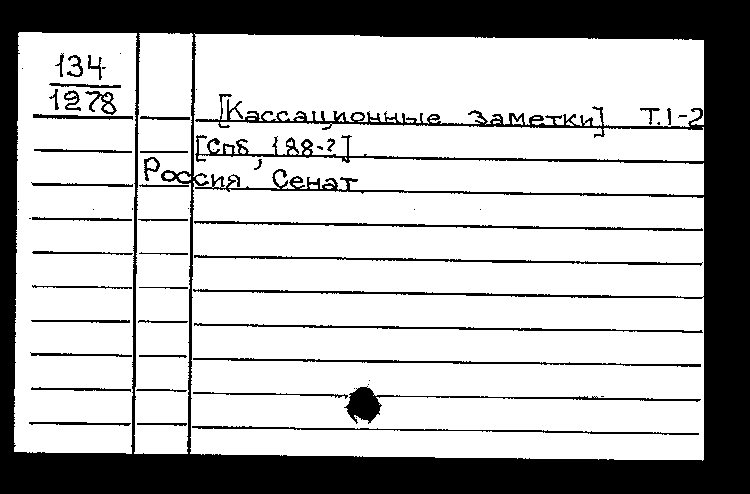 134
1278
[Кассационные заметки] Т.1-2
[Спб, 188-?]
Россия. Сенат.